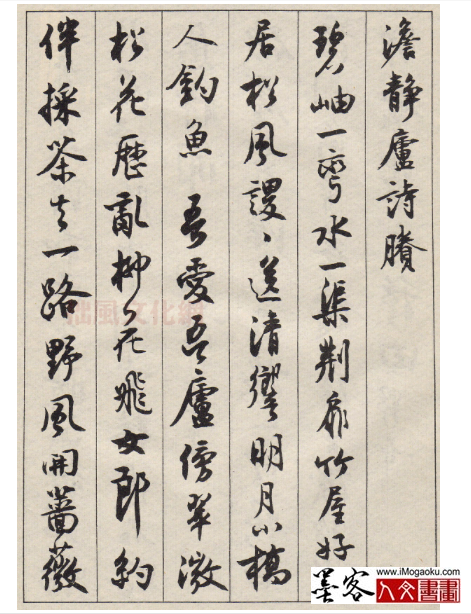 澹静廬詩賸
碧岫一彎水一渠荆扉竹屋好
居松風謖〻送清響明月小橋
人釣魚 吾愛吾廬傍翠微
松花歷亂柳花飛女郎約
伴採茶去一路野風開薔薇
墨客
www.iMogaoku.com
人文書畫